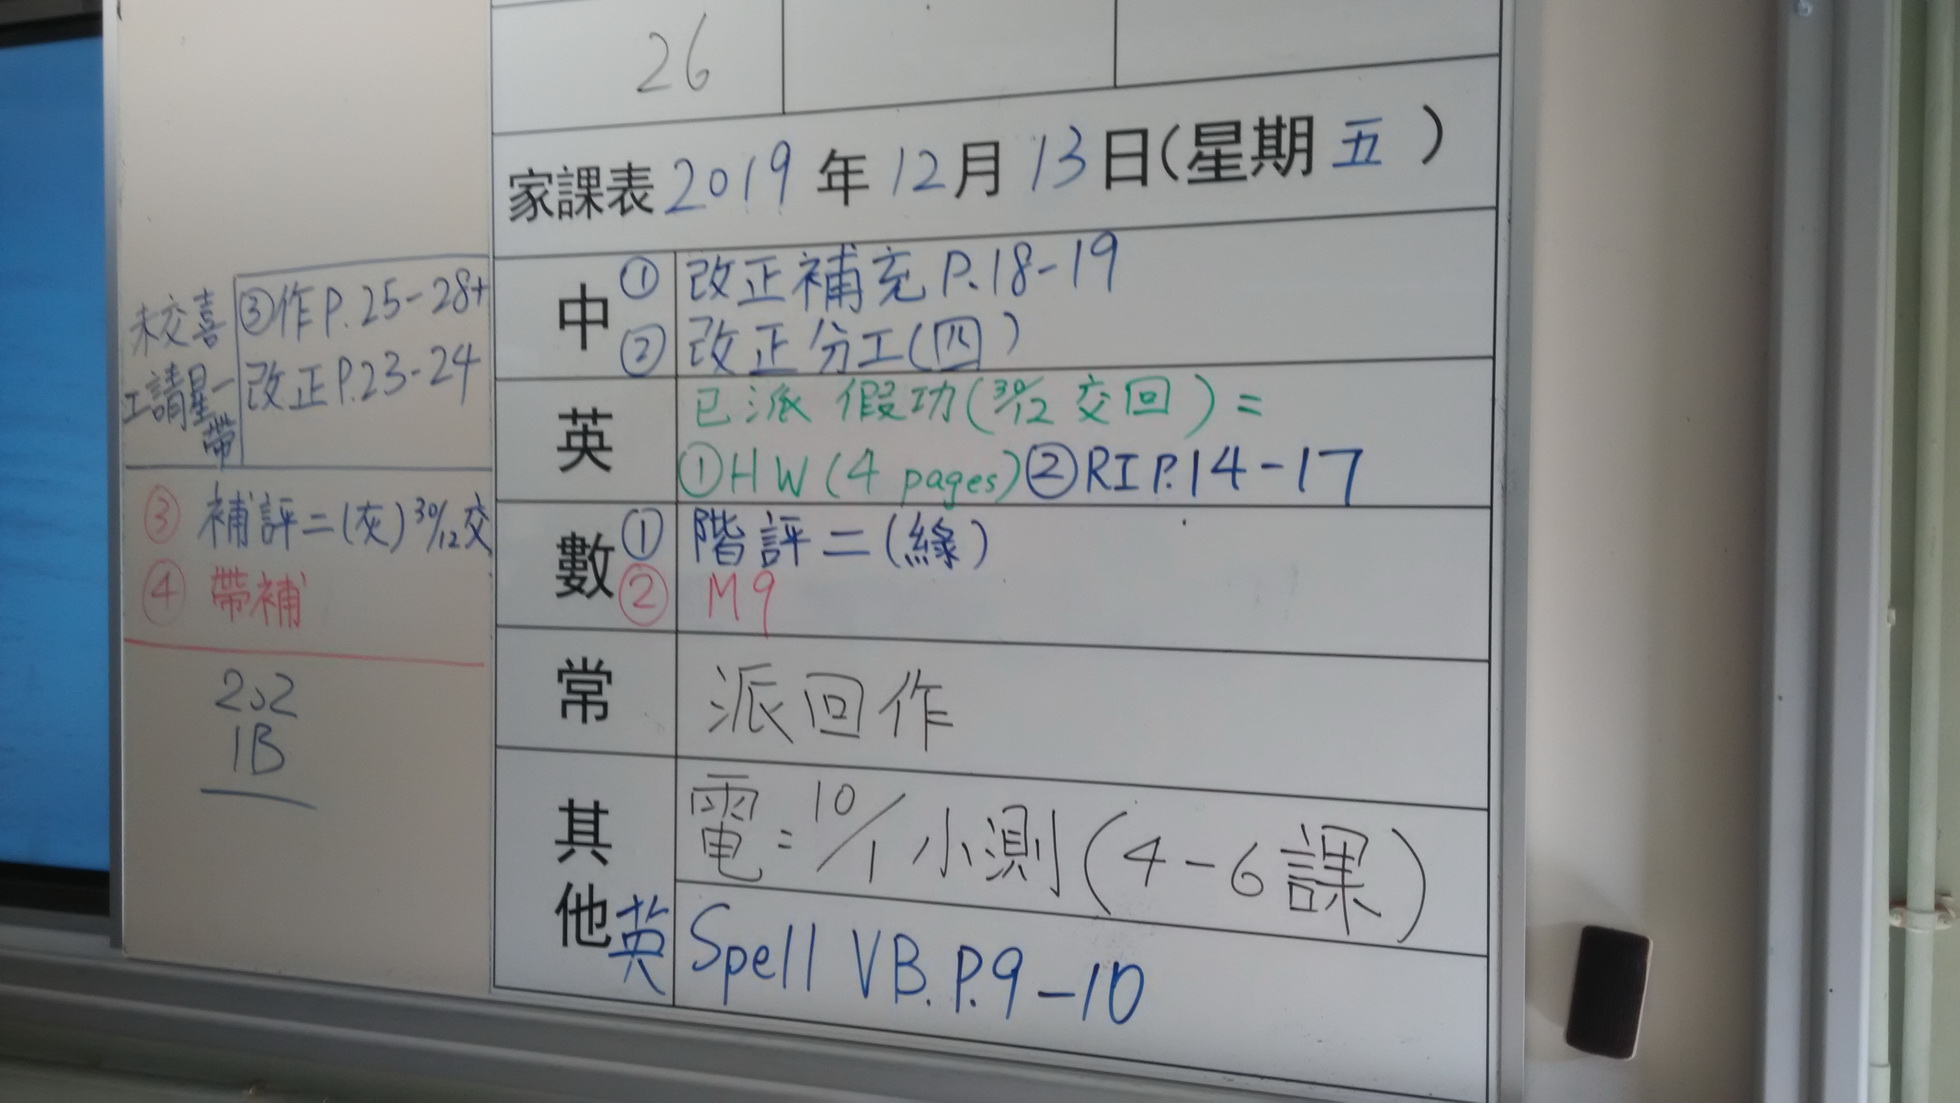 26
家課表 2019 年 12 月 13 日(星期 五 )
中 ① 改正補充 P.18-19
② 改正分工(四)
③作P.25-28+
改正P.23-24
未交喜
工請星一
帶
英 已派 假功(30/12 交回) =
①HW (4 pages) ②RI P.14-17
數 ① 階評二(綠)
② M9
③ 補評二(灰) 30/12交
④ 帶補
常 派回作
202
1B
其他 電: 10/1 小測(4-6課)
英 Spell VB. P.9-10